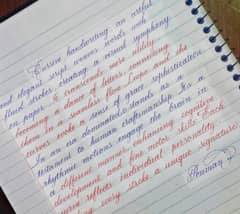 Cursive handwriting, an artful
and elegant script, weaves words with
fluid strokes, creating a visual symphony
on paper. It transcends mere utility,
becoming a dance of letters, connecting
them in a seamless flow. Loops and
curves evoke a sense of grace, sophistication.
In an era dominated, stands as a
testament to human craftsmanship. Its
rhythmic motions engage the brain in
a different manner, enhancing cognitive
development and fine motor skills. Each
curve reflects individual personality,
every stroke a unique signature.